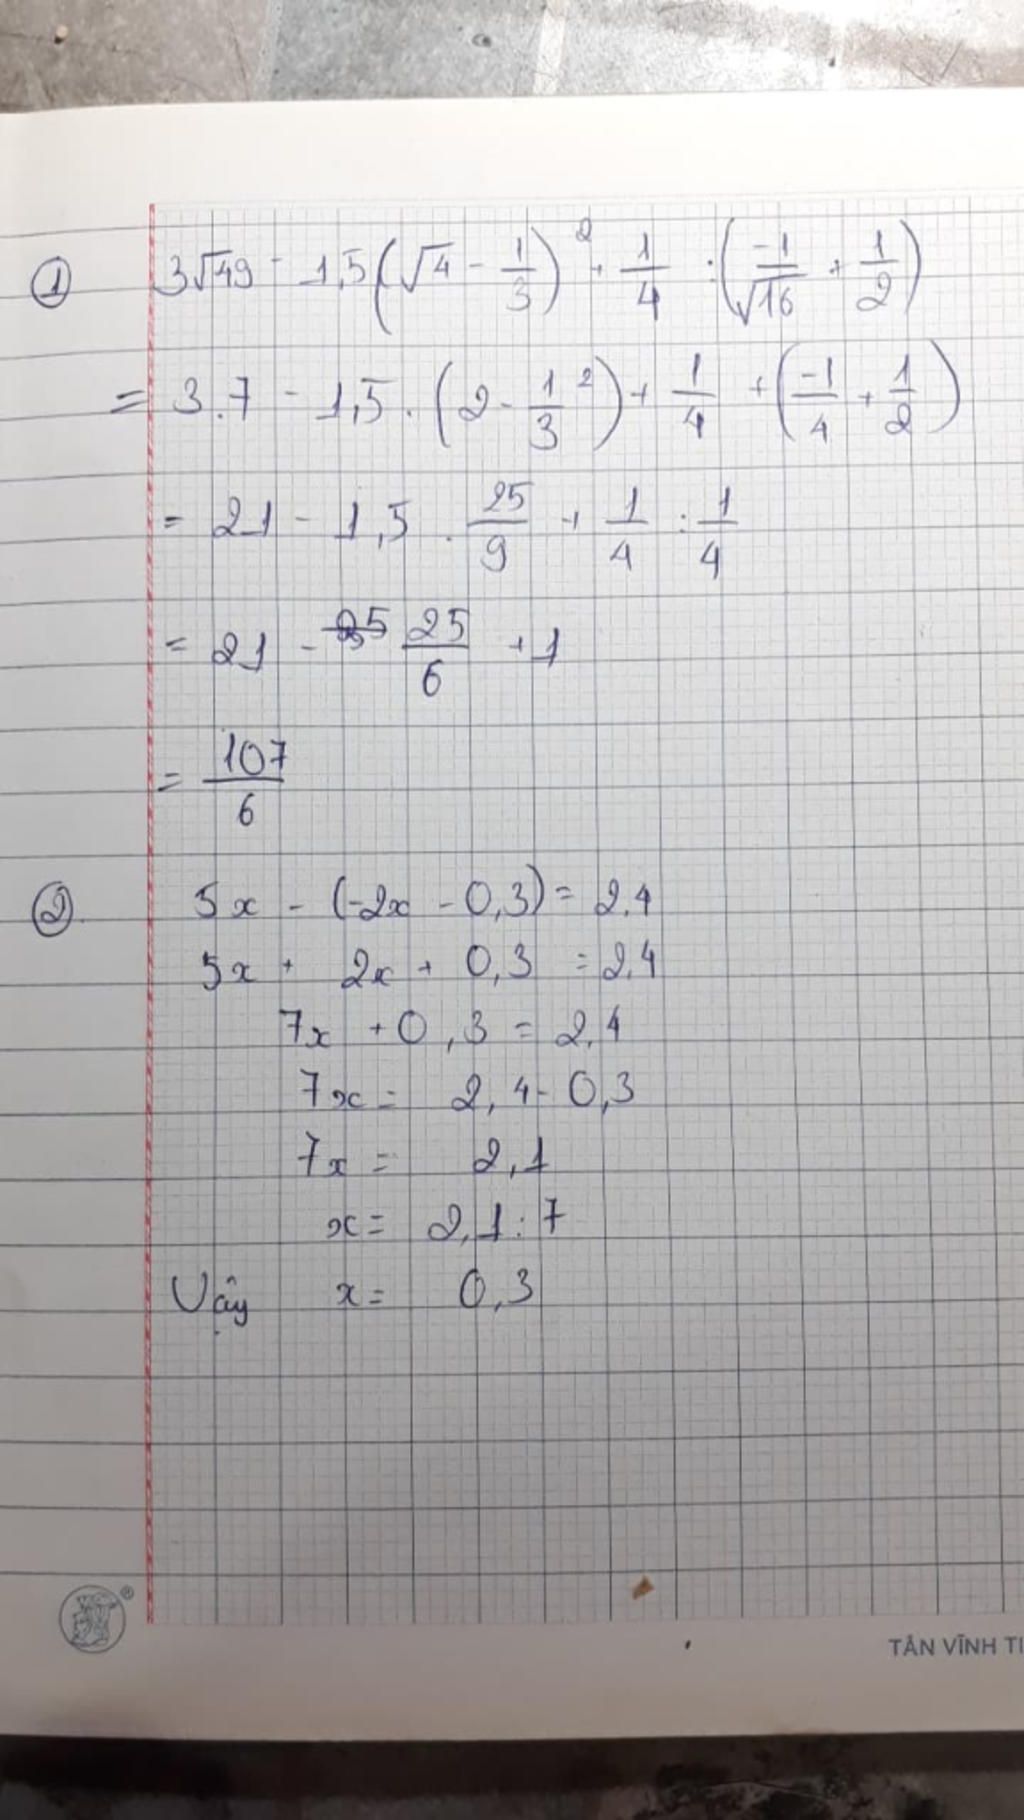 ① 3√49 - 1,5(√4 - 1/3)² + 1/4 : (-1/√16 + 1/2)
= 3.7 - 1,5 . (2 - 1/3²) + 1/4 + (-1/4 + 1/2)
= 21 - 1,5 . 25/9 + 1/4 : 1/4
= 21 - 25/6 + 1
= 107/6
②. 5x - (-2x - 0,3) = 2,4
5x + 2x + 0,3 = 2,4
7x + 0,3 = 2,4
7x = 2,4 - 0,3
7x = 2,1
x = 2,1 : 7
Vậy x = 0,3
®
TÂN VĨNH TI